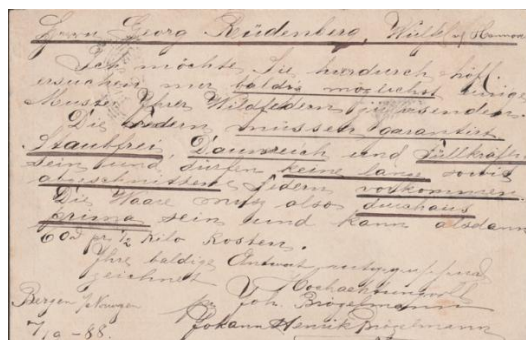 Herrn Georg Rüdenberg, Wülfel
Ich möchte Sie hierdurch höfl.
ersuchen mir baldig möglichst einige
Muster Ihrer Wildfedern zusenden.
Die Federn müssen garantirt
Staubfrei, Daunreich und füllkräftig
sein und dürfen keine lange sowie
abgeschnittene Federn vorkommen.
Die Waare muß also durchaus
prima sein und kann alsdann
60 pr ½ Kilo kosten.
Ihre baldige Antwort
zeichnet Hochachtungsvoll
Bergen Joh. Brögelmann
Johann Henrik Brögelmann
88.